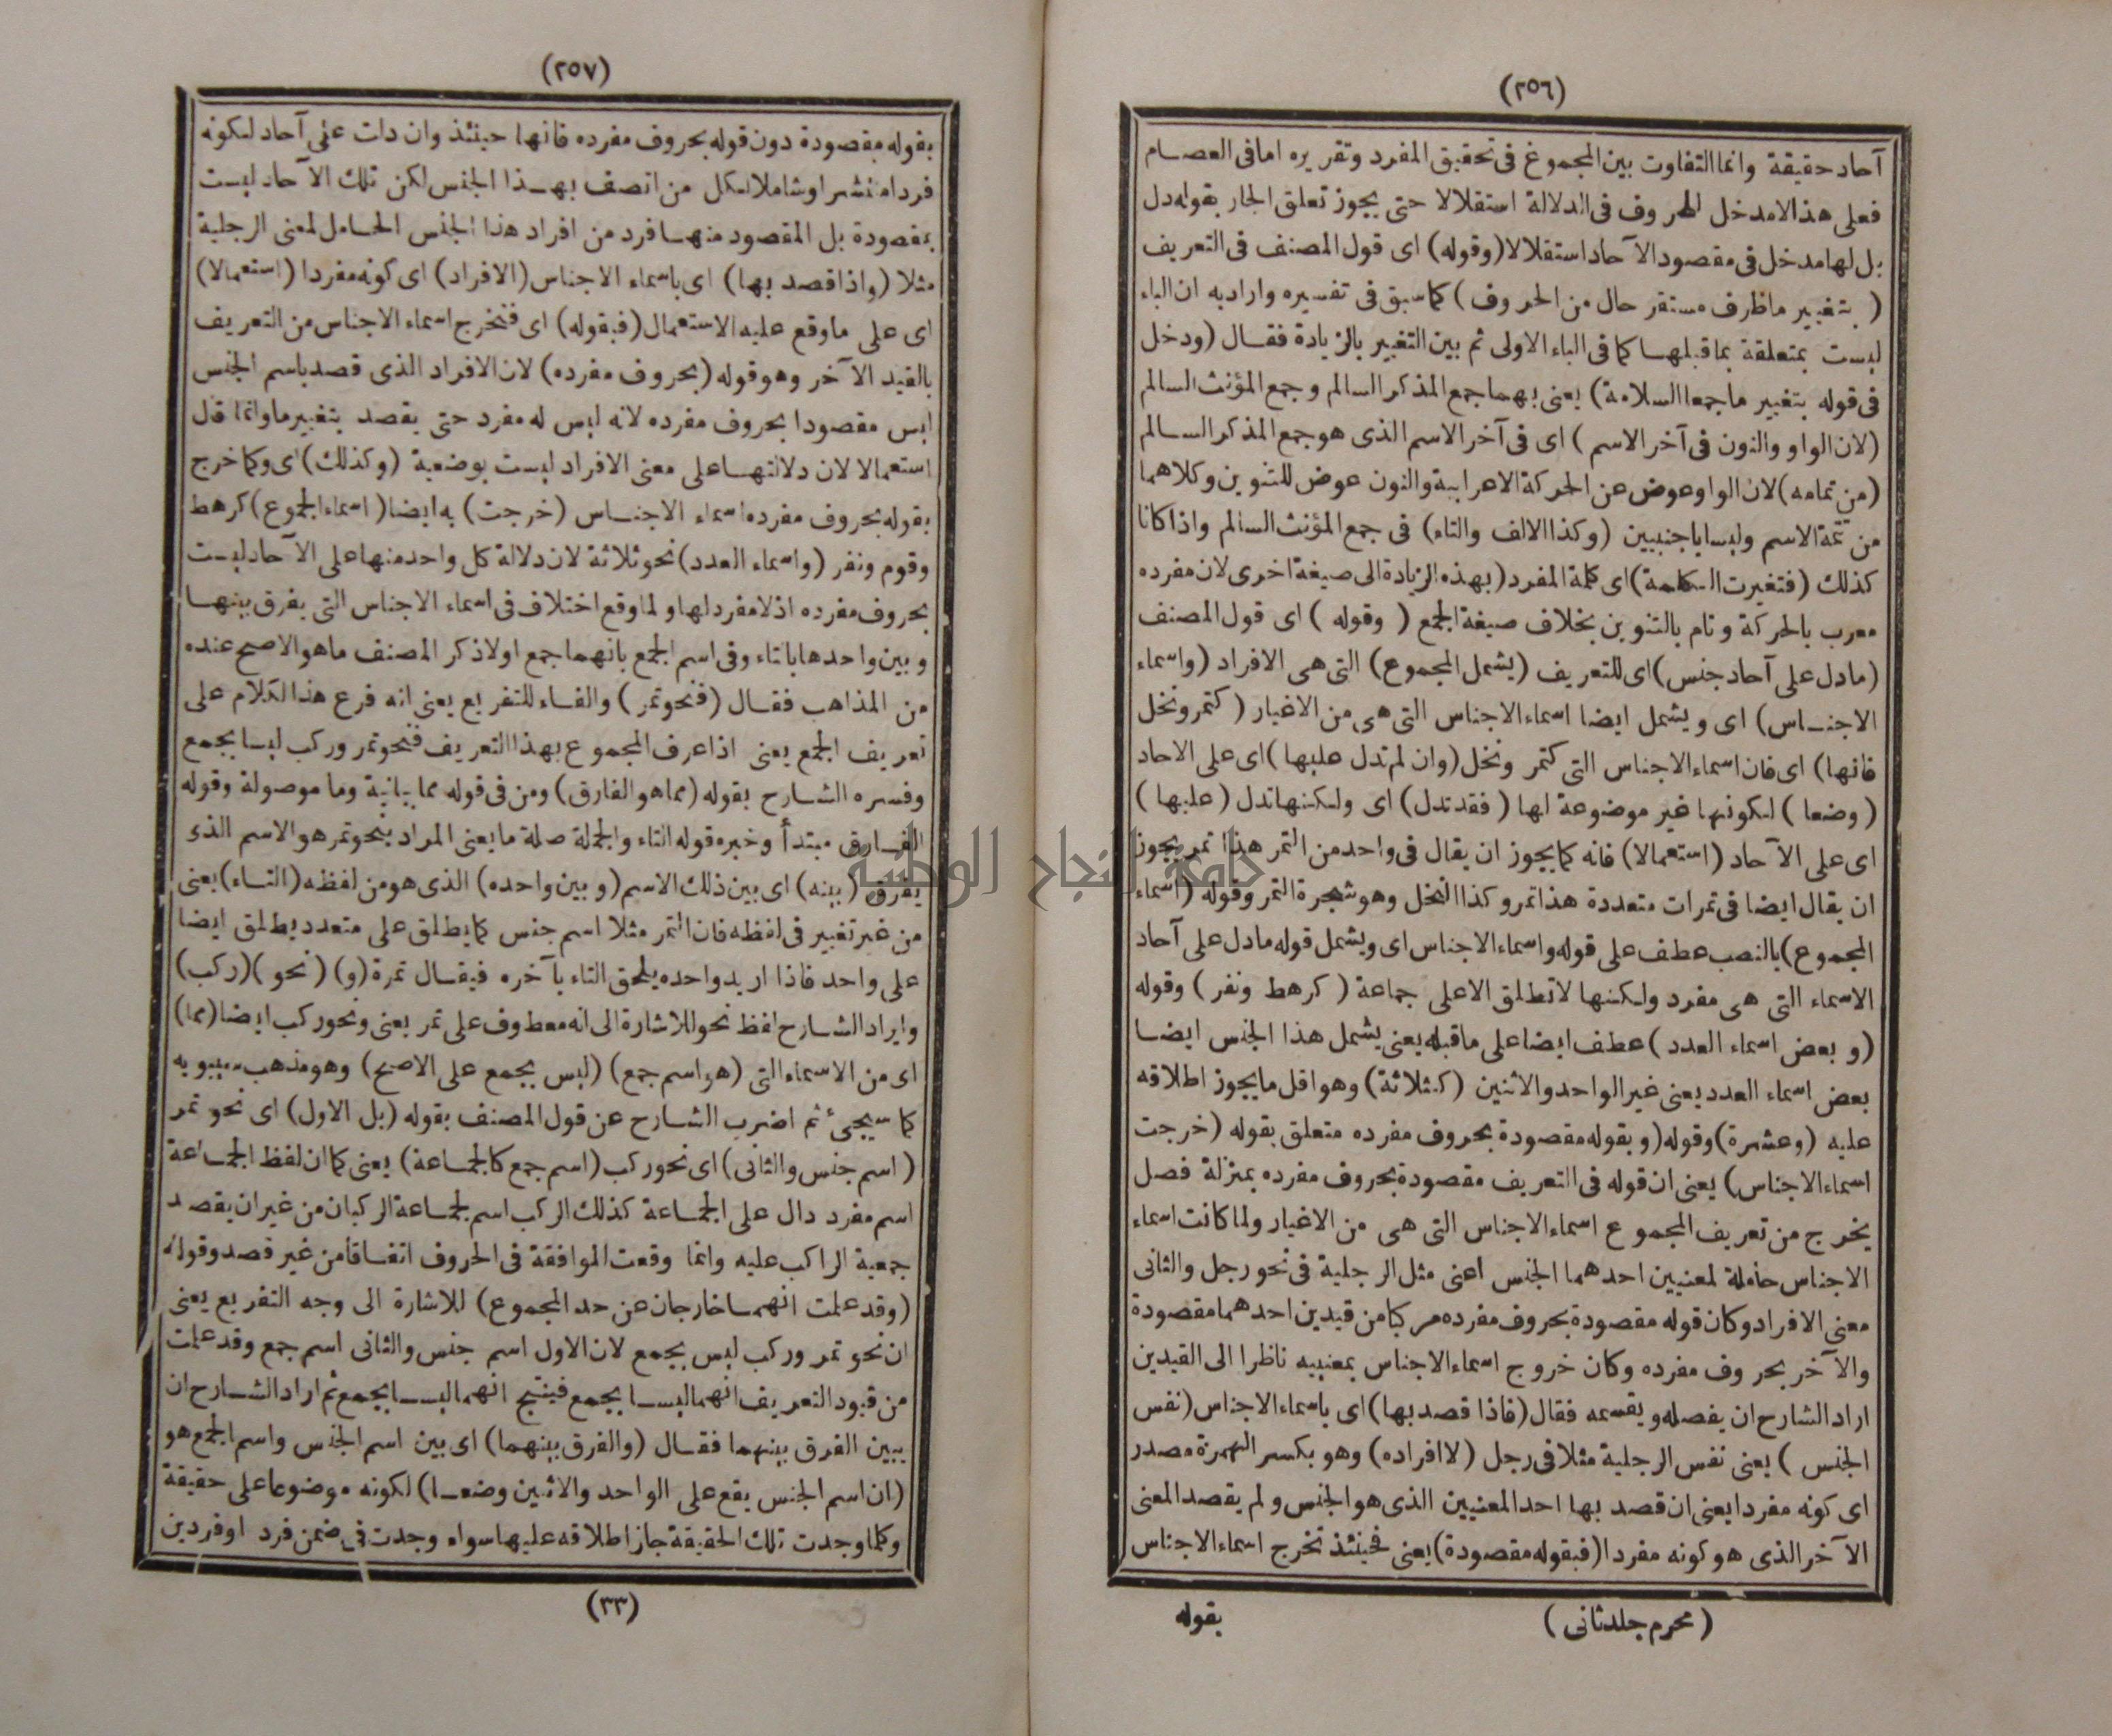 (٢٥٦)
آحاد حقيقة وانما التفاوت بين المجموع فى تحقيق المفرد وتقريره اما فى العصام
فعلى هذا لا مدخل للحروف فى الدلالة استقلالا حتى يجوز تعلق الجار بقوله دل
بل لها مدخل فى مقصود الآحاد استقلالا (وقوله) اى قول المصنف فى التعريف
( بتغيير ما ظرف مستقر حال من الحروف ) كما سبق فى تفسيره واراد به ان الباء
ليست بمتعلقة بما قبلها كما فى الباء الاولى ثم بين التغيير بالزيادة فقال (ودخل
فى قوله بتغيير ما جمعا السلامة) يعنى بهما جمع المذكر السالم وجمع المؤنث السالم
(لان الواو والنون فى آخر الاسم ) اى فى آخر الاسم الذى هو جمع المذكر السالم
(من تمامه) لان الواو عوض عن الحركة الاعرابية والنون عوض للتنوين وكلاهما
من تتمة الاسم وليسا باجنبيين (وكذا الالف والتاء) فى جمع المؤنث السالم واذا كانا
كذلك (فتغيرت الكلمة) اى كلمة المفرد (بهذه الزيادة الى صيغة اخرى لان مفرده
معرب بالحركة وتام بالتنوين بخلاف صيغة الجمع ( وقوله ) اى قول المصنف
(ما دل على آحاد جنس) اى للتعريف (يشمل المجموع) التى هى الافراد (واسماء
الاجناس) اى ويشمل ايضا اسماء الاجناس التى هى من الاغيار ( كتمر ونخل
فانها) اى فان اسماء الاجناس التى كتمر ونخل (وان لم تدل عليها) اى على الاحاد
( وضعا ) لكونها غير موضوعة لها ( فقد تدل) اى ولكنها تدل ( عليها )
اى على الآحاد (استعمالا) فانه كما يجوز ان يقال فى واحد من التمر هذا تمر يجوز
ان يقال ايضا فى تمرات متعددة هذا تمر وكذا النخل وهو شجرة التمر وقوله (اسماء
المجموع) بالنصب عطف على قوله واسماء الاجناس اى ويشمل قوله ما دل على آحاد
الاسماء التى هى مفرد ولكنها لا تطلق الا على جماعة ( كرهط ونفر ) وقوله
(وبعض اسماء العدد ) عطف ايضا على ما قبله يعنى يشمل هذا الجنس ايضا
بعض اسماء العدد يعنى غير الواحد والاثنين (كثلاثة) وهو اقل ما يجوز اطلاقه
عليه (وعشرة) وقوله (وبقوله مقصودة بحروف مفرده متعلق بقوله (خرجت
اسماء الاجناس) يعنى ان قوله فى التعريف مقصودة بحروف مفرده بمنزلة فصل
يخرج من تعريف المجموع اسماء الاجناس التى هى من الاغيار ولما كانت اسماء
الاجناس حاملة لمعنيين احدهما الجنس اعنى مثل الرجلية فى نحو رجل والثانى
معنى الافراد وكان قوله مقصودة بحروف مفرده مركبا من قيدين احدهما مقصودة
والآخر بحروف مفرده وكان خروج اسماء الاجناس بمعنييه ناظرا الى القيدين
اراد الشارح ان يفصله ويقسمه فقال (فاذا قصد بها) اى باسماء الاجناس (نفس
الجنس ) يعنى نفس الرجلية مثلا فى رجل (لا افراده) وهو بكسر الهمزة مصدر
اى كونه مفردا يعنى ان قصد بها احد المعنيين الذى هو الجنس ولم يقصد المعنى
الآخر الذى هو كونه مفردا (فبقوله مقصودة) يعنى فحينئذ تخرج اسماء الاجناس
(محرم جلد ثانى )
بقوله
(٢٥٧)
بقوله مقصودة دون قوله بحروف مفرده فانها حينئذ وان دلت على آحاد لكونه
فردا منتشرا وشاملا لكل من اتصف بهذا الجنس لكن تلك الآحاد ليست
بمقصودة بل المقصود منها فرد من افراد هذا الجنس الحامل لمعنى الرجلية
مثلا (واذا قصد بها) اى باسماء الاجناس (الافراد) اى كونه مفردا (استعمالا)
اى على ما وقع عليه الاستعمال (فبقوله) اى فتخرج اسماء الاجناس من التعريف
بالقيد الآخر وهو قوله (بحروف مفرده) لان الافراد الذى قصد باسم الجنس
ليس مقصودا بحروف مفرده لانه ليس له مفرد حتى يقصد بتغيير ما وانما قال
استعمالا لان دلالتها على معنى الافراد ليست بوضعية (وكذلك) اى وكما خرج
بقوله بحروف مفرده اسماء الاجناس (خرجت) به ايضا (اسماء الجموع) كرهط
وقوم ونفر (واسماء العدد) نحو ثلاثة لان دلالة كل واحد منها على الآحاد ليست
بحروف مفرده اذ لا مفرد لها ولما وقع اختلاف فى اسماء الاجناس التى يفرق بينها
وبين واحدها بالتاء وفى اسم الجمع بانهما جمع او لا ذكر المصنف ما هو الاصح عنده
من المذاهب فقال (فنحو تمر ) والفاء للتفريع يعنى انه فرع هذا الكلام على
تعريف الجمع يعنى اذا عرف المجموع بهذا التعريف فنحو تمر وركب ليسا بجمع
وفسره الشارح بقوله (مما هو الفارق) ومن فى قوله مما بيانية وما موصولة وقوله
الفارق مبتدأ وخبره قوله التاء والجملة صلة ما يعنى المراد بنحو تمر هو الاسم الذى
يفرق (بينه) اى بين ذلك الاسم (وبين واحده) الذى هو من لفظه (التاء) يعنى
من غير تغيير فى لفظه فان التمر مثلا اسم جنس كما يطلق على متعدد يطلق ايضا
على واحد فاذا اريد واحده يلحق التاء بآخره فيقال تمرة (و) (نحو ) (ركب)
وايراد الشارح لفظ نحو للاشارة الى انه معطوف على تمر يعنى ونحو ركب ايضا (مما)
اى من الاسماء التى (هو اسم جمع) (ليس بجمع على الاصح) وهو مذهب سيبويه
كما سيجىء ثم اضرب الشارح عن قول المصنف بقوله (بل الاول) اى نحو تمر
(اسم جنس والثانى) اى نحو ركب (اسم جمع كالجماعة) يعنى كما ان لفظ الجماعة
اسم مفرد دال على الجماعة كذلك الركب اسم لجماعة الركبان من غير ان يقصد
جمعية الراكب عليه وانما وقعت الموافقة فى الحروف اتفاقا من غير قصد وقوله
(وقد علمت انهما خارجان عن حد المجموع) للاشارة الى وجه التفريع يعنى
ان نحو تمر وركب ليس بجمع لان الاول اسم جنس والثانى اسم جمع وقد علمت
من قيود التعريف انهما ليسا بجمع فينتج انهما ليسا بجمع ثم اراد الشارح ان
يبين الفرق بينهما فقال (والفرق بينهما) اى بين اسم الجنس واسم الجمع هو
(ان اسم الجنس يقع على الواحد والاثنين وضعا) لكونه موضوعا على حقيقة
وكلما وجدت تلك الحقيقة جاز اطلاقه عليها سواء وجدت فى ضمن فرد او فردين
(٣٣)
جامعة النجاح الوطنية